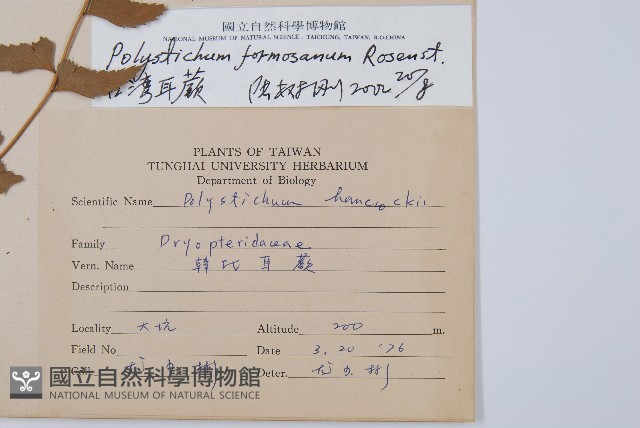 國立自然科學博物館
NATIONAL MUSEUM OF NATURAL SCIENCE, TAICHUNG, TAIWAN, R.O.CHINA
Polystichum formosanum Rosenst.
台灣耳蕨 2002 20/8
PLANTS OF TAIWAN
TUNGHAI UNIVERSITY HERBARIUM
Department of Biology
Scientific Name Polystichum hancockii
Family Dryopteridaceae
Vern. Name 韓氏耳蕨
Description
Locality 大坑 Altitude 200 m.
Field No Date 3. 20 '76
Coll. Deter.
國立自然科學博物館
NATIONAL MUSEUM OF NATURAL SCIENCE